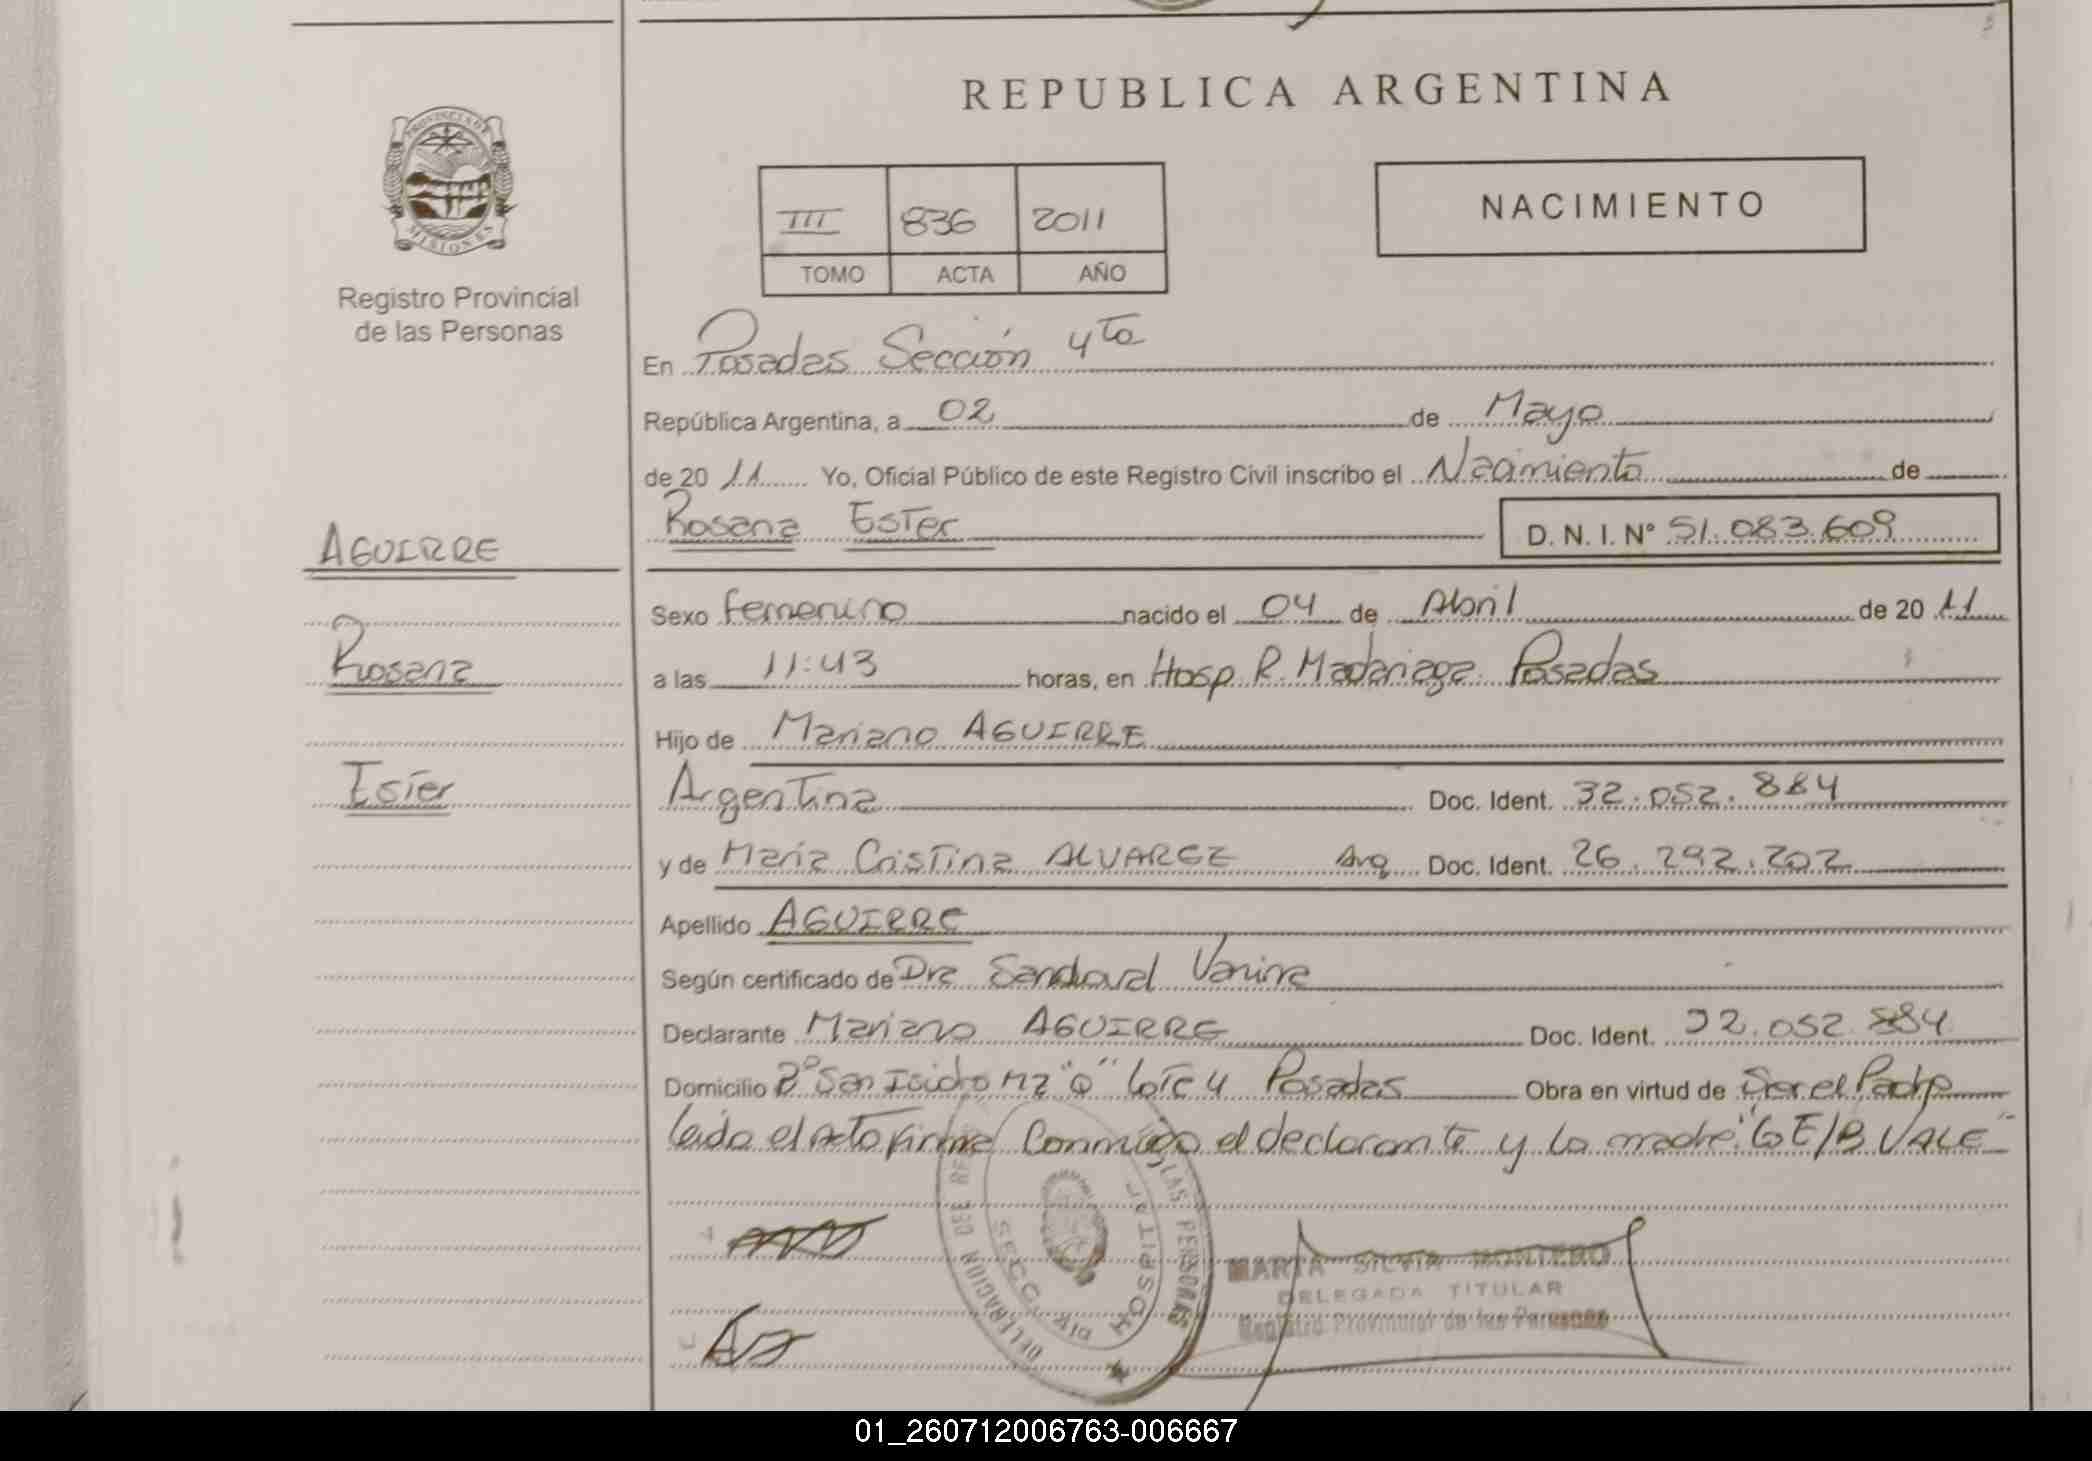 REPUBLICA ARGENTINA
PROVINCIA DE
MISIONES
Registro Provincial
de las Personas
NACIMIENTO
III 836 2011
TOMO ACTA AÑO
En Posadas Sección 4ta
República Argentina, a 02 de Mayo
de 20 11 Yo, Oficial Público de este Registro Civil inscribo el Nacimiento de
Rosana Ester D. N. I. Nº 51.083.609
AGUIRRE
Rosana
Ester
Sexo femenino nacido el 04 de Abril de 20 11
a las 11:43 horas, en Hosp. R. Madariaga Posadas
Hijo de Mariano AGUIRRE
Argentina Doc. Ident. 32.052.884
y de María Cristina ALVAREZ Arg Doc. Ident. 26.292.202
Apellido AGUIRRE
Según certificado de Dra Sandoval Vanina
Declarante Mariano AGUIRRE Doc. Ident. 32.052.884
Domicilio Bº San Isidro Mz "Q" Lote 4 Posadas Obra en virtud de Ser el Padre
leída el Acta firma Conmigo el declarante y la madre E/B VALE
LAS PERSONAS
HOSPITAL
MARTA SILVIA MONTERO
DELEGADA TITULAR
Registro Provincial de las Personas
01_260712006763-006667